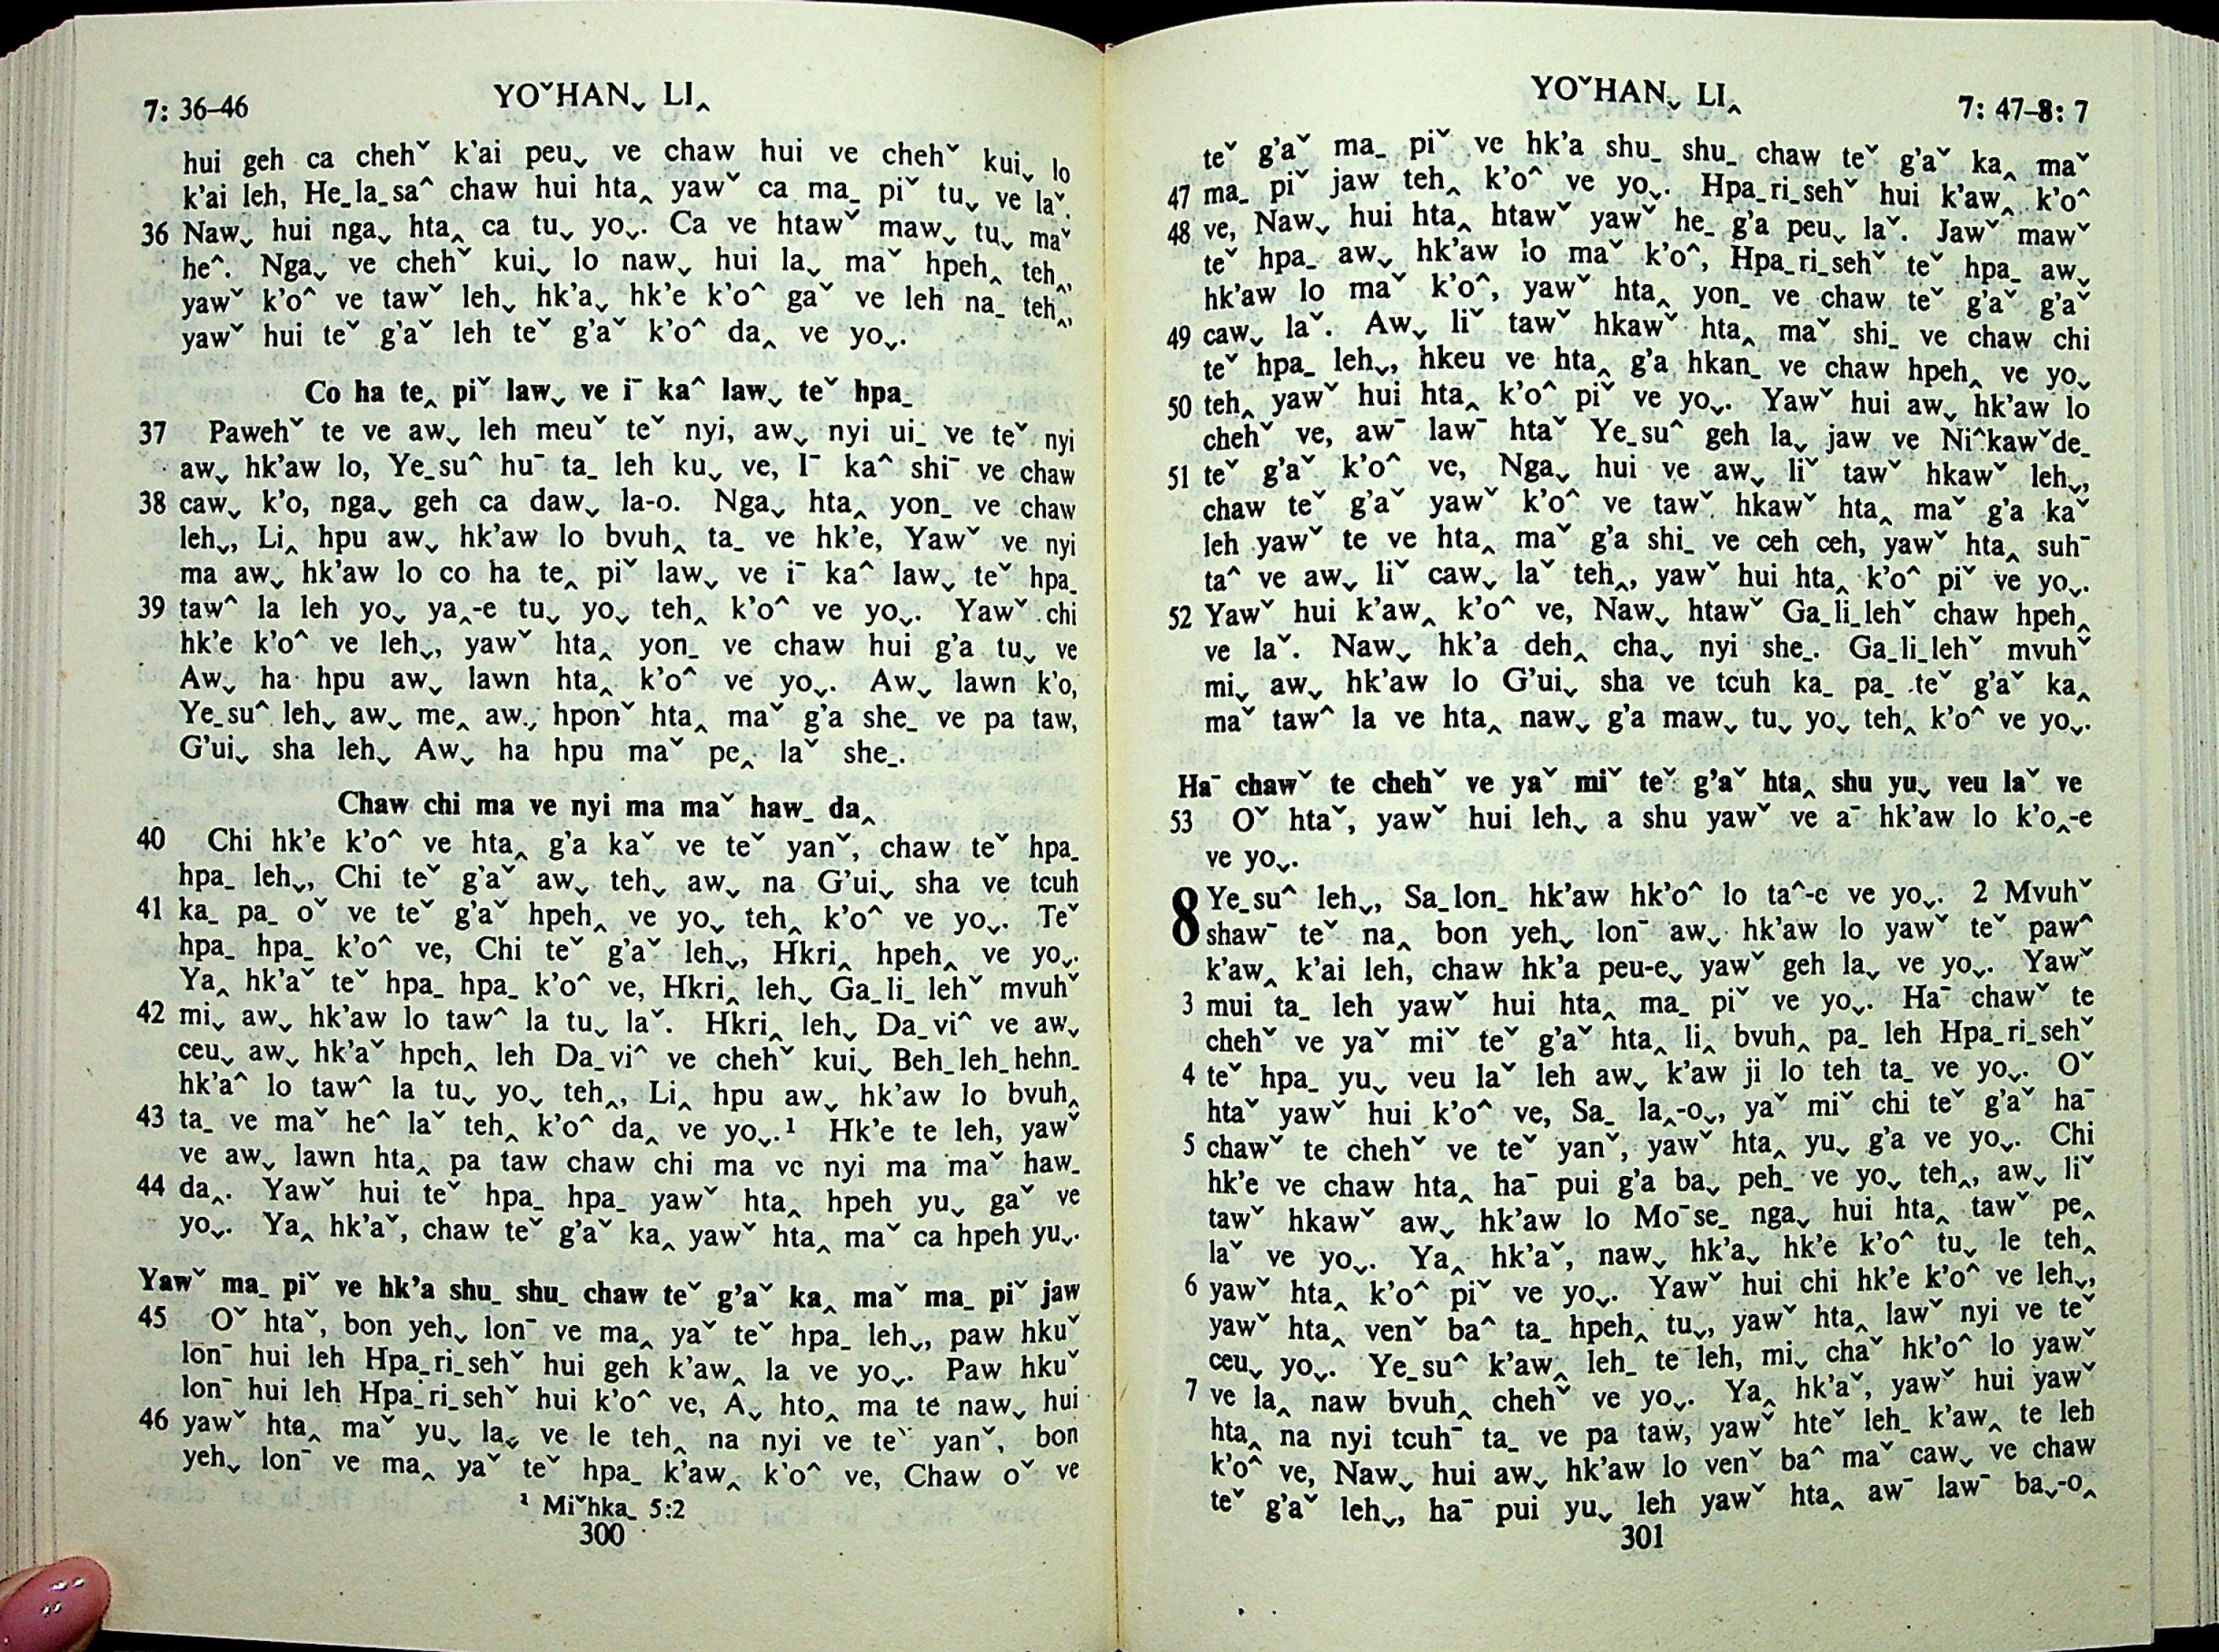 7: 36–46
YOˇHANˬ LI‸
hui geh ca chehˇ k'ai peuˬ ve chaw hui ve chehˇ kuiˬ lo
k'ai leh, He_la_sa^ chaw hui hta‸ yawˇ ca ma_ piˇ tuˬ ve laˇ.
36 Nawˬ hui ngaˬ hta‸ ca tuˬ yoˬ. Ca ve htawˇ mawˬ tuˬ maˇ
he^. Ngaˬ ve chehˇ kuiˬ lo nawˬ hui laˬ maˇ hpeh‸ teh‸,
yawˇ k'o^ ve tawˇ lehˬ hk'aˬ hk'e k'o^ gaˇ ve leh na_ teh‸,
yawˇ hui teˇ g'aˇ leh teˇ g'aˇ k'o^ da‸ ve yoˬ.
Co ha te‸ piˇ lawˬ ve iˉ ka^ lawˬ teˇ hpa_
37 Pawehˇ te ve awˬ leh meuˇ teˇ nyi, awˬ nyi ui_ ve teˇ nyi
awˬ hk'aw lo, Ye_su^ huˉ ta_ leh kuˬ ve, Iˉ ka^ shiˉ ve chaw
38 cawˬ k'o, ngaˬ geh ca dawˬ la-o. Ngaˬ hta‸ yon_ ve chaw
lehˬ, Li‸ hpu awˬ hk'aw lo bvuh‸ ta_ ve hk'e, Yawˇ ve nyi
ma awˬ hk'aw lo co ha te‸ piˇ lawˬ ve iˉ ka^ lawˬ teˇ hpa_
39 taw^ la leh yoˬ ya‸-e tuˬ yoˬ teh‸ k'o^ ve yoˬ. Yawˇ chi
hk'e k'o^ ve lehˬ, yawˇ hta‸ yon_ ve chaw hui g'a tuˬ ve
Awˬ ha hpu awˬ lawn hta‸ k'o^ ve yoˬ. Awˬ lawn k'o,
Ye_su^ lehˬ awˬ me‸ awˬ hponˇ hta‸ maˇ g'a she_ ve pa taw,
G'uiˬ sha lehˬ Awˬ ha hpu maˇ pe‸ laˇ she_.
Chaw chi ma ve nyi ma maˇ haw_ da‸
40 Chi hk'e k'o^ ve hta‸ g'a kaˇ ve teˇ yanˇ, chaw teˇ hpa_
hpa_ lehˬ, Chi teˇ g'aˇ awˬ tehˬ awˬ na G'uiˬ sha ve tcuh
41 ka_ pa_ oˇ ve teˇ g'aˇ hpeh‸ ve yoˬ teh‸ k'o^ ve yoˬ. Teˇ
hpa_ hpa_ k'o^ ve, Chi teˇ g'aˇ lehˬ, Hkri‸ hpeh‸ ve yoˬ.
Ya‸ hk'aˇ teˇ hpa_ hpa_ k'o^ ve, Hkri‸ lehˬ Ga_li_ lehˇ mvuhˇ
42 miˬ awˬ hk'aw lo taw^ la tuˬ laˇ. Hkri‸ lehˬ Da_vi^ ve awˬ
ceuˬ awˬ hk'aˇ hpeh‸ leh Da_vi^ ve chehˇ kuiˬ Beh_leh_hehn_
hk'a^ lo taw^ la tuˬ yoˬ teh‸, Li‸ hpu awˬ hk'aw lo bvuh‸
43 ta_ ve maˇ he^ laˇ teh‸ k'o^ da‸ ve yoˬ.¹ Hk'e te leh, yawˇ
ve awˬ lawn hta‸ pa taw chaw chi ma ve nyi ma maˇ haw_
44 da‸. Yawˇ hui teˇ hpa_ hpa_ yawˇ hta‸ hpeh yuˬ gaˇ ve
yoˬ. Ya‸ hk'aˇ, chaw teˇ g'aˇ ka‸ yawˇ hta‸ maˇ ca hpeh yuˬ.
Yawˇ ma_ piˇ ve hk'a shu_ shu_ chaw teˇ g'aˇ ka‸ maˇ ma_ piˇ jaw
45 Oˇ htaˇ, bon yehˬ lonˉ ve ma‸ yaˇ teˇ hpa_ lehˬ, paw hkuˇ
lonˉ hui leh Hpa_ri_sehˇ hui geh k'aw‸ la ve yoˬ. Paw hkuˇ
lonˉ hui leh Hpa_ri_sehˇ hui k'o^ ve, Aˬ hto‸ ma te nawˬ hui
46 yawˇ hta‸ maˇ yuˬ laˬ ve le teh‸ na nyi ve teˇ yanˇ, bon
yehˬ lonˉ ve ma‸ yaˇ teˇ hpa_ k'aw‸ k'o^ ve, Chaw oˇ ve
¹ Miˇhka_ 5:2
300
YOˇHANˬ LI‸
7: 47–8: 7
teˇ g'aˇ ma_ piˇ ve hk'a shu_ shu_ chaw teˇ g'aˇ ka‸ maˇ
47 ma_ piˇ jaw teh‸ k'o^ ve yoˬ. Hpa_ri_sehˇ hui k'aw‸ k'o^
48 ve, Nawˬ hui hta‸ htawˇ yawˇ he_ g'a peuˬ laˇ. Jawˇ mawˇ
teˇ hpa_ awˬ hk'aw lo maˇ k'o^, Hpa_ri_sehˇ teˇ hpa_ awˬ
hk'aw lo maˇ k'o^, yawˇ hta‸ yon_ ve chaw teˇ g'aˇ g'aˇ
49 cawˬ laˇ. Awˬ liˇ tawˇ hkawˇ hta‸ maˇ shi_ ve chaw chi
teˇ hpa_ lehˬ, hkeu ve hta‸ g'a hkan_ ve chaw hpeh‸ ve yoˬ
50 teh‸ yawˇ hui hta‸ k'o^ piˇ ve yoˬ. Yawˇ hui awˬ hk'aw lo
chehˇ ve, awˉ lawˉ htaˇ Ye_su^ geh laˬ jaw ve Ni^kawˇde_
51 teˇ g'aˇ k'o^ ve, Ngaˬ hui ve awˬ liˇ tawˇ hkawˇ lehˬ,
chaw teˇ g'aˇ yawˇ k'o^ ve tawˇ hkawˇ hta‸ maˇ g'a kaˇ
leh yawˇ te ve hta‸ maˇ g'a shi_ ve ceh ceh, yawˇ hta‸ suhˉ
ta^ ve awˬ liˇ cawˬ laˇ teh‸, yawˇ hui hta‸ k'o^ piˇ ve yoˬ.
52 Yawˇ hui k'aw‸ k'o^ ve, Nawˬ htawˇ Ga_li_lehˇ chaw hpeh‸
ve laˇ. Nawˬ hk'a deh‸ chaˬ nyi she_. Ga_li_lehˇ mvuhˇ
miˬ awˬ hk'aw lo G'uiˬ sha ve tcuh ka_ pa_ teˇ g'aˇ ka‸
maˇ taw^ la ve hta‸ nawˬ g'a mawˬ tuˬ yoˬ teh‸ k'o^ ve yoˬ.
Haˉ chawˇ te chehˇ ve yaˇ miˇ teˇ g'aˇ hta‸ shu yuˬ veu laˇ ve
53 Oˇ htaˇ, yawˇ hui lehˬ a shu yawˇ ve aˉ hk'aw lo k'o‸-e
ve yoˬ.
8 Ye_su^ lehˬ, Sa_lon_ hk'aw hk'o^ lo ta^-e ve yoˬ. 2 Mvuhˇ
shawˉ teˇ na‸ bon yehˬ lonˉ awˬ hk'aw lo yawˇ teˇ paw^
k'aw‸ k'ai leh, chaw hk'a peu-eˬ yawˇ geh laˬ ve yoˬ. Yawˇ
3 mui ta_ leh yawˇ hui hta‸ ma_ piˇ ve yoˬ. Haˉ chawˇ te
chehˇ ve yaˇ miˇ teˇ g'aˇ hta‸ li‸ bvuh‸ pa_ leh Hpa_ri_sehˇ
4 teˇ hpa_ yuˬ veu laˇ leh awˬ k'aw ji lo teh ta_ ve yoˬ. Oˇ
htaˇ yawˇ hui k'o^ ve, Sa_ la‸-oˬ, yaˇ miˇ chi teˇ g'aˇ haˉ
5 chawˇ te chehˇ ve teˇ yanˇ, yawˇ hta‸ yuˬ g'a ve yoˬ. Chi
hk'e ve chaw hta‸ haˉ pui g'a baˬ peh_ ve yoˬ teh‸, awˬ liˇ
tawˇ hkawˇ awˬ hk'aw lo Moˉse_ ngaˬ hui hta‸ tawˇ pe‸
laˇ ve yoˬ. Ya‸ hk'aˇ, nawˬ hk'aˬ hk'e k'o^ tuˬ le teh‸
6 yawˇ hta‸ k'o^ piˇ ve yoˬ. Yawˇ hui chi hk'e k'o^ ve lehˬ,
yawˇ hta‸ venˇ ba^ ta_ hpeh‸ tuˬ, yawˇ hta‸ lawˇ nyi ve teˇ
ceuˬ yoˬ. Ye_su^ k'aw‸ leh_ te leh, miˬ chaˇ hk'o^ lo yawˇ
7 ve la‸ naw bvuh‸ chehˇ ve yoˬ. Ya‸ hk'aˇ, yawˇ hui yawˇ
hta‸ na nyi tcuhˉ ta_ ve pa taw, yawˇ hteˇ leh_ k'aw‸ te leh
k'o^ ve, Nawˬ hui awˬ hk'aw lo venˇ ba^ maˇ cawˬ ve chaw
teˇ g'aˇ lehˬ, haˉ pui yuˬ leh yawˇ hta‸ awˉ lawˉ baˬ-o‸
301